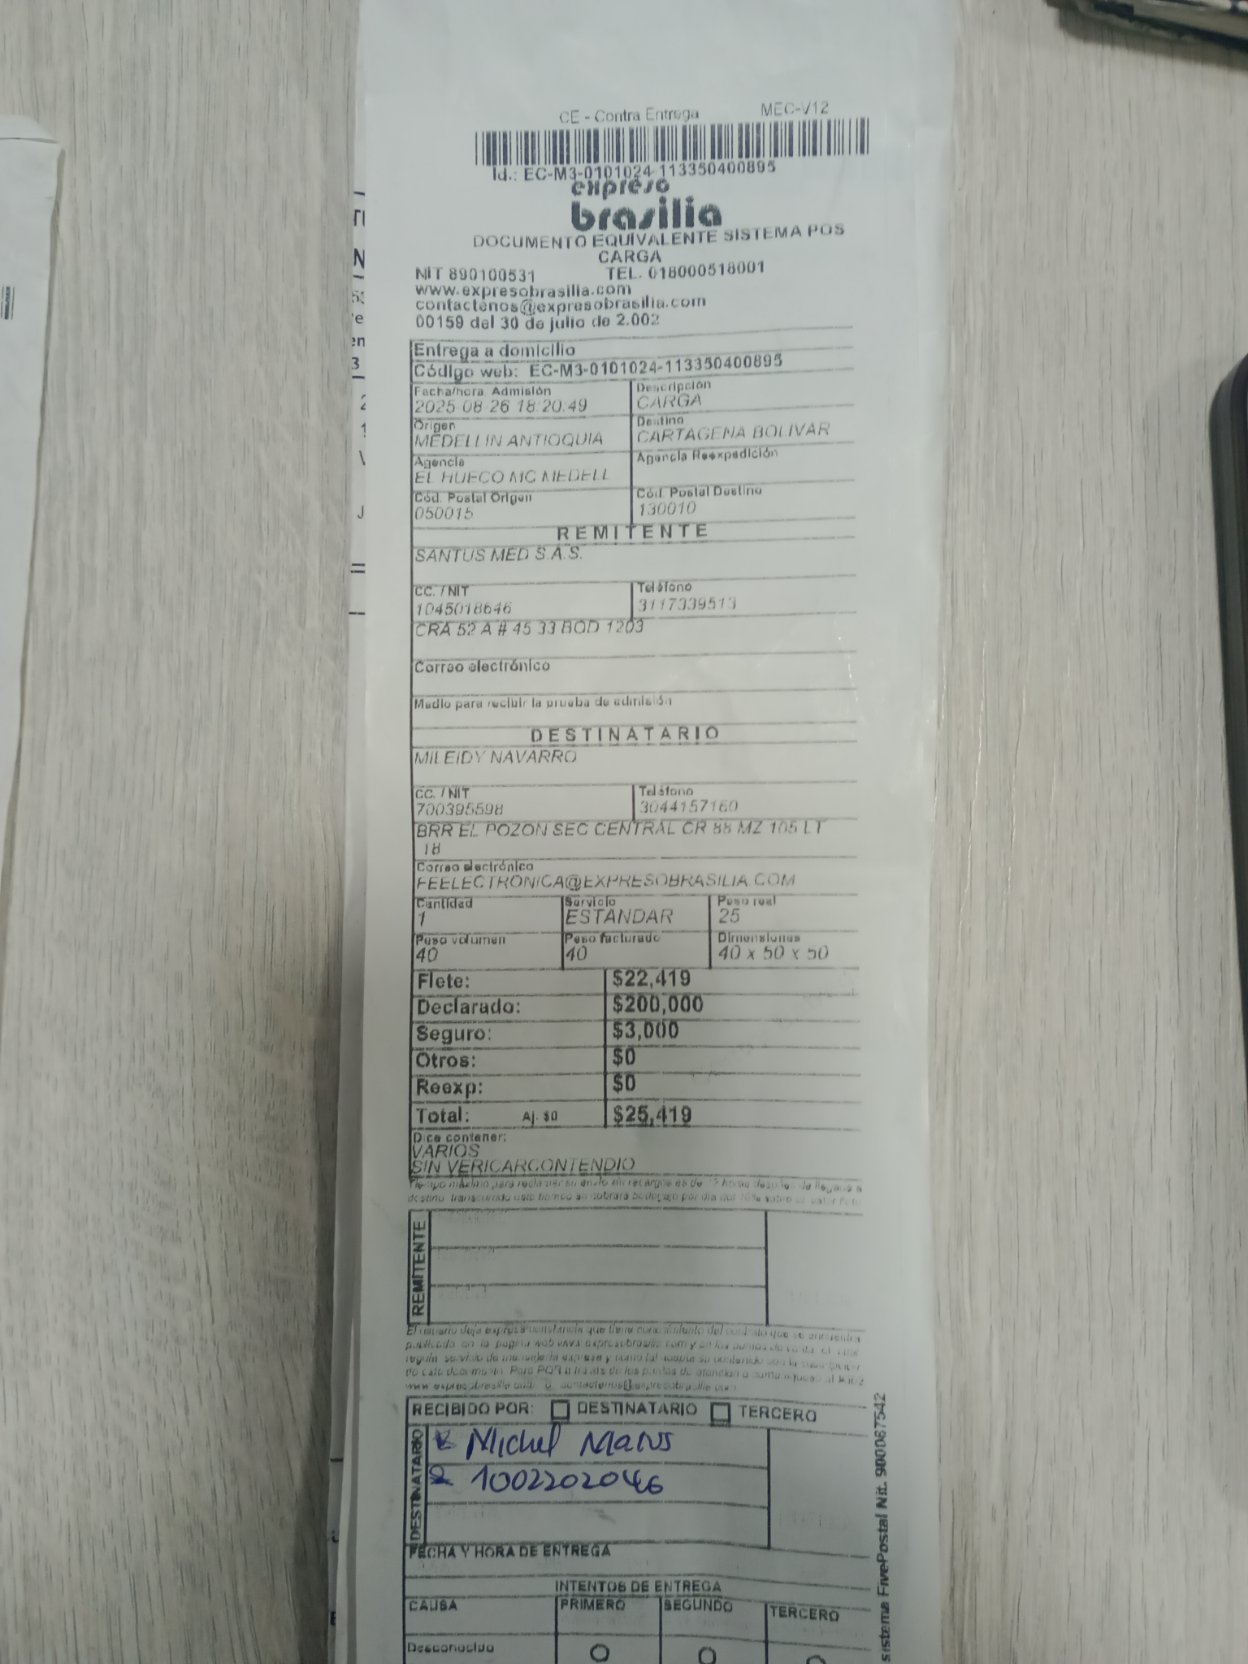 CE - Contra Entrega MEC-V12
Id.: EC-M3-0101024-113350400895
expreso
brasilia
DOCUMENTO EQUIVALENTE SISTEMA POS
CARGA
NIT 890100531 TEL. 018000518001
www.expresobrasilia.com
contactenos@expresobrasilia.com
00159 del 30 de julio de 2.002
Entrega a domicilio
Código web: EC-M3-0101024-113350400895
Fecha/hora Admisión Descripción
2025 08 26 18:20:49 CARGA
Origen Destino
MEDELLIN ANTIOQUIA CARTAGENA BOLIVAR
Agencia Agencia Reexpedición
EL HUECO MC MEDELL
Cód. Postal Origen Cód. Postal Destino
050015 130010
REMITENTE
SANTUS MED S.A.S.
CC. / NIT Teléfono
1045018646 3117339513
CRA 52 A # 45 33 BOD 1203
Correo electrónico
Medio para recibir la prueba de admisión
DESTINATARIO
MILEIDY NAVARRO
CC. / NIT Teléfono
700395598 3044157160
BRR EL POZON SEC CENTRAL CR 88 MZ 105 LT
18
Correo electrónico
FEELECTRONICA@EXPRESOBRASILIA.COM
Cantidad Servicio Peso real
1 ESTANDAR 25
Peso volumen Peso facturado Dimensiones
40 40 40 x 50 x 50
Flete: $22,419
Declarado: $200,000
Seguro: $3,000
Otros: $0
Reexp: $0
Total: Aj. $0 $25,419
Dice contener:
VARIOS
SIN VERICARCONTENDIO
REMITENTE
RECIBIDO POR: DESTINATARIO TERCERO
DESTINATARIO
Michel
1002202046
FECHA Y HORA DE ENTREGA
INTENTOS DE ENTREGA
CAUSA PRIMERO SEGUNDO TERCERO
Desconocido
sistema FivePostal Nit. 900087542